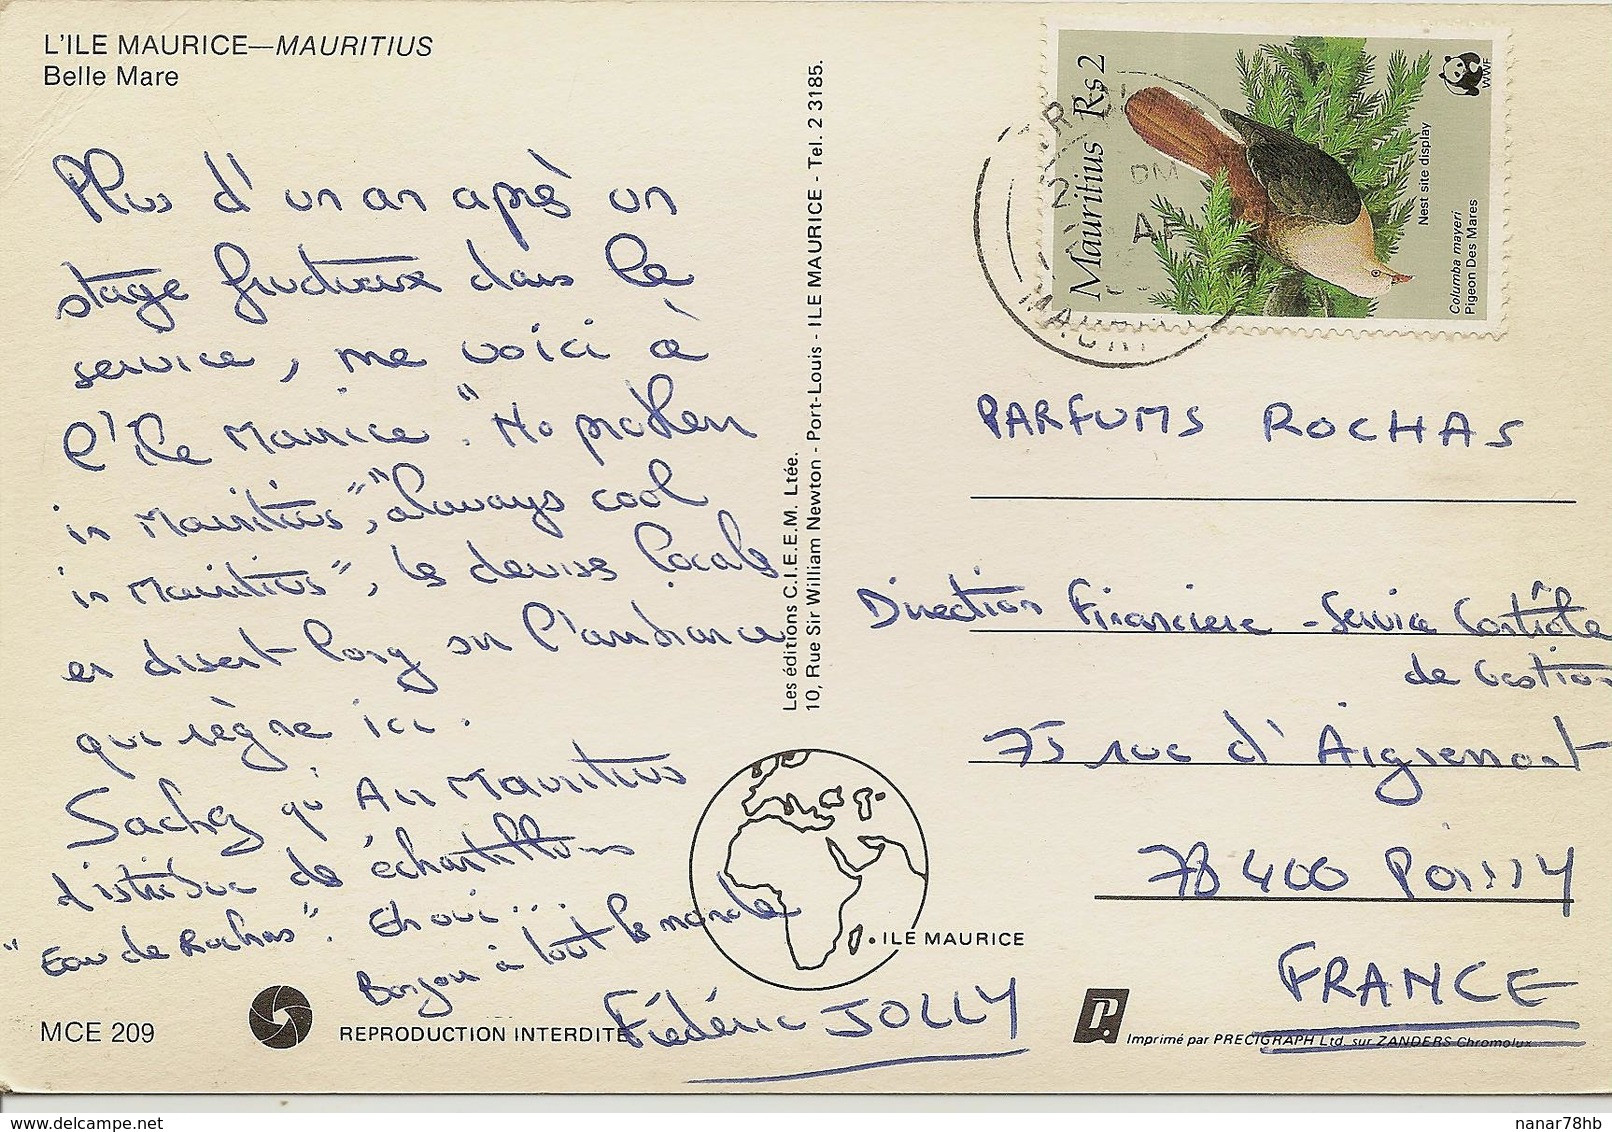 L'ILE MAURICE—MAURITIUS
Belle Mare
Plus d'un an après un
stage fructueux dans le
service, me voici à
l'île Maurice. "No problem
in Mauritius", "always cool
in Mauritius", les devises locales
en disent long sur l'ambiance
qui règne ici.
Sachez qu'Air Mauritius
distribue des échantillons
"Eau de Rochas". Eh oui...
Bonjour à tout le monde
Frédéric JOLLY
MCE 209
REPRODUCTION INTERDITE
Les éditions C.I.E.E.M. Ltée.
10, Rue Sir William Newton - Port-Louis - ILE MAURICE - Tel. 2 3185.
ILE MAURICE
Mauritius Rs2
WWF
Nest site display
Columba mayeri
Pigeon Des Mares
PM
MAURI
PARFUMS ROCHAS
Direction Financière - Service Contrôle
de Gestion
75 rue d'Aigremont
78400 Poissy
FRANCE
Imprimé par PRECIGRAPH Ltd. sur ZANDERS Chromolux
nanar78hb